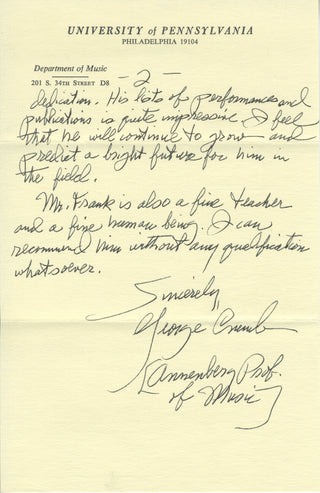 UNIVERSITY of PENNSYLVANIA
PHILADELPHIA 19104
Department of Music
201 S. 34TH STREET D8
— 2 —
dedication. His lists of performances and
publications is quite impressive. I feel
that he will continue to grow and
predict a bright future for him in
the field.
Mr. Frank is also a fine teacher
and a fine human being. I can
recommend him without any qualification
whatsoever.
Sincerely,
George Crumb
[Annenberg Prof.
of Music]